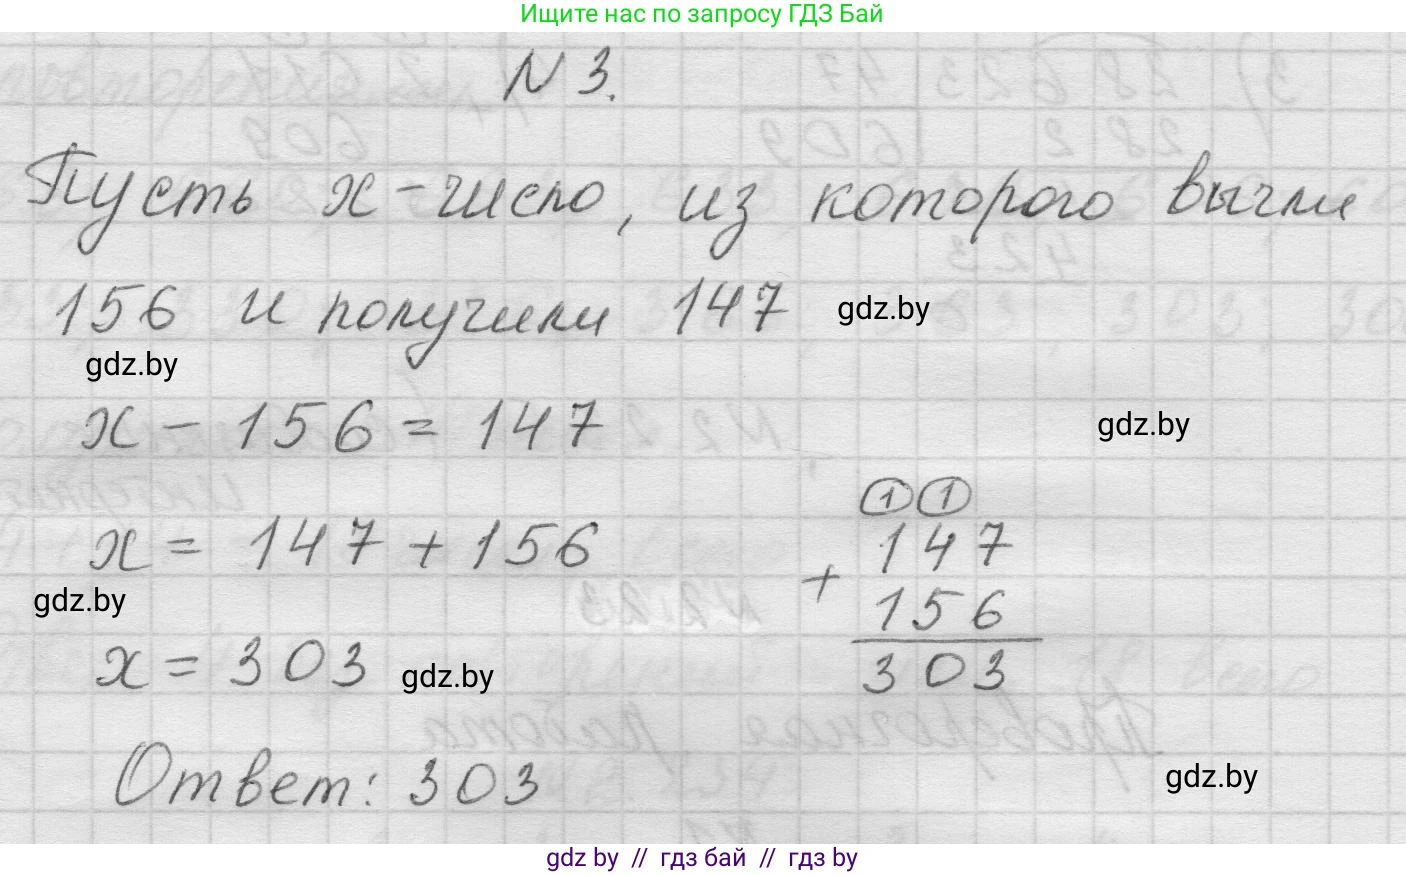 Ищите нас по запросу ГДЗ Бай
N 3.
Пусть x - число, из которого вычли
156 и получили 147
gdz.by
gdz.by
x - 156 = 147
gdz.by
x = 147 + 156
1 1
147
+
156
303
gdz.by
x = 303
gdz.by
Ответ: 303
gdz.by
gdz by // гдз бай // гдз by